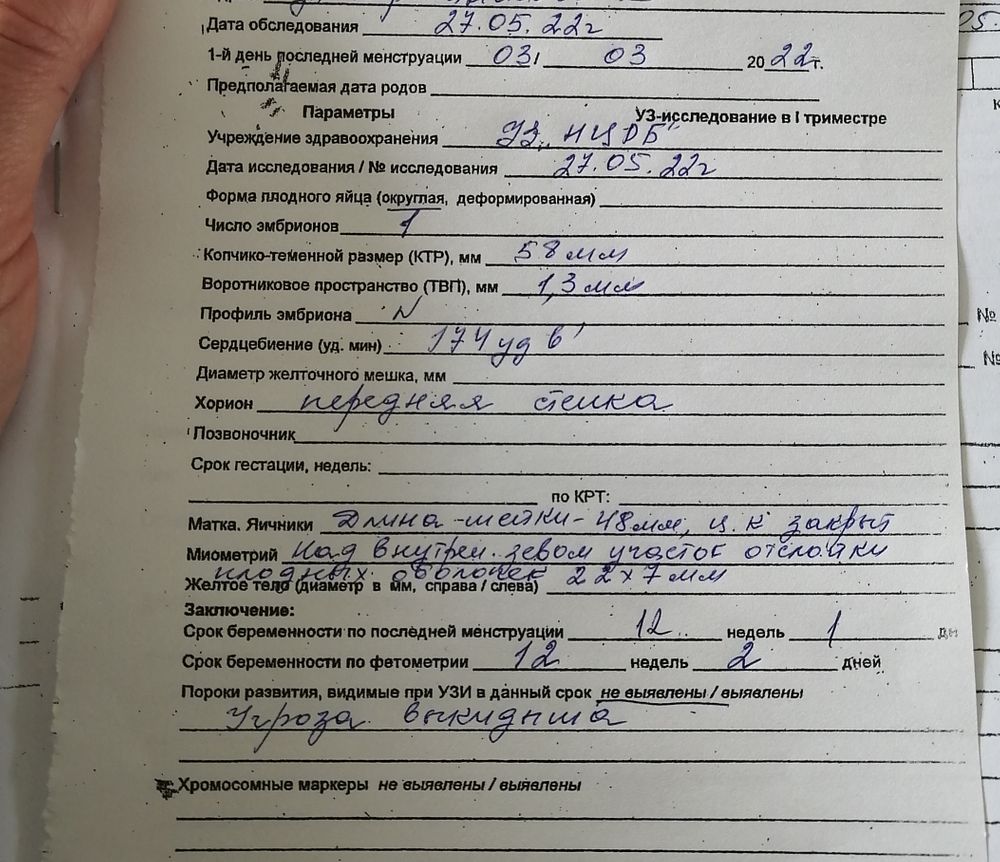 Дата обследования 27.05.22г
1-й день последней менструации 03, 03 2022г.
Предполагаемая дата родов
Параметры УЗ-исследование в I триместре
Учреждение здравоохранения УЗ "НЦРБ"
Дата исследования / № исследования 27.05.22г
Форма плодного яйца (округлая, деформированная)
Число эмбрионов 1
Копчико-теменной размер (КТР), мм 58 мм
Воротниковое пространство (ТВП), мм 1,3 мм
Профиль эмбриона N
Сердцебиение (уд. мин) 174 уд в'
Диаметр желточного мешка, мм
Хорион передняя стенка
Позвоночник
Срок гестации, недель:
по КРТ:
Матка. Яичники Длина шейки - 48 мм, ц.к закрыт
Миометрий Над внутрен. зевом участок отслойки
плодных оболочек 22х7 мм
Желтое тело (диаметр в мм, справа / слева)
Заключение:
Срок беременности по последней менструации 12 недель 1
Срок беременности по фетометрии 12 недель 2 дней
Пороки развития, видимые при УЗИ в данный срок не выявлены / выявлены
Угроза выкидыша
Хромосомные маркеры не выявлены / выявлены
№
№